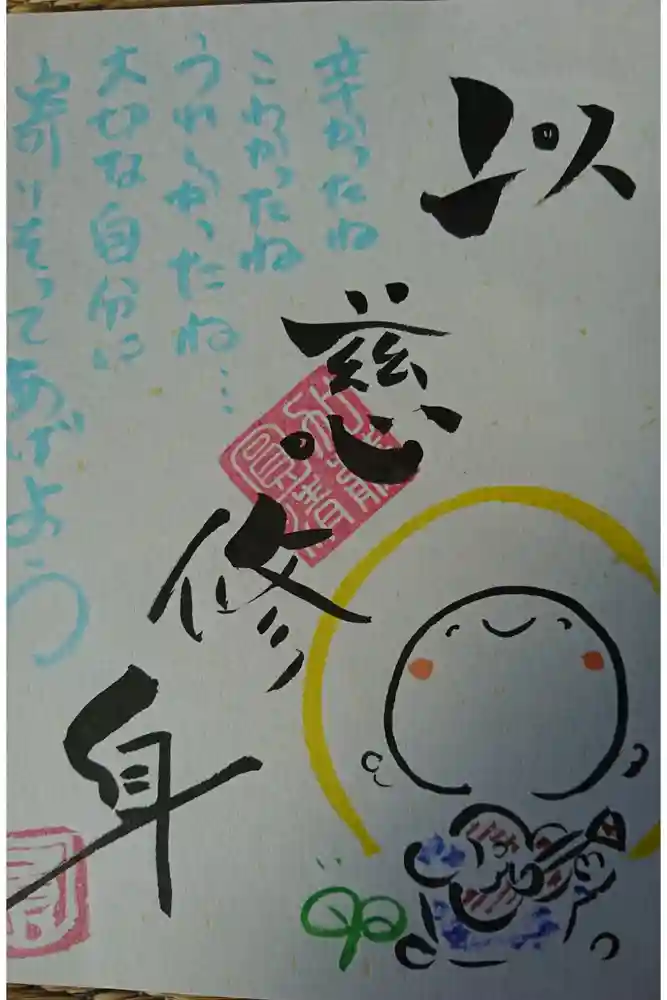 以慈修身
辛かったね
こわかったね
うれしかったね…
大切な自分に
寄りそってあげよう